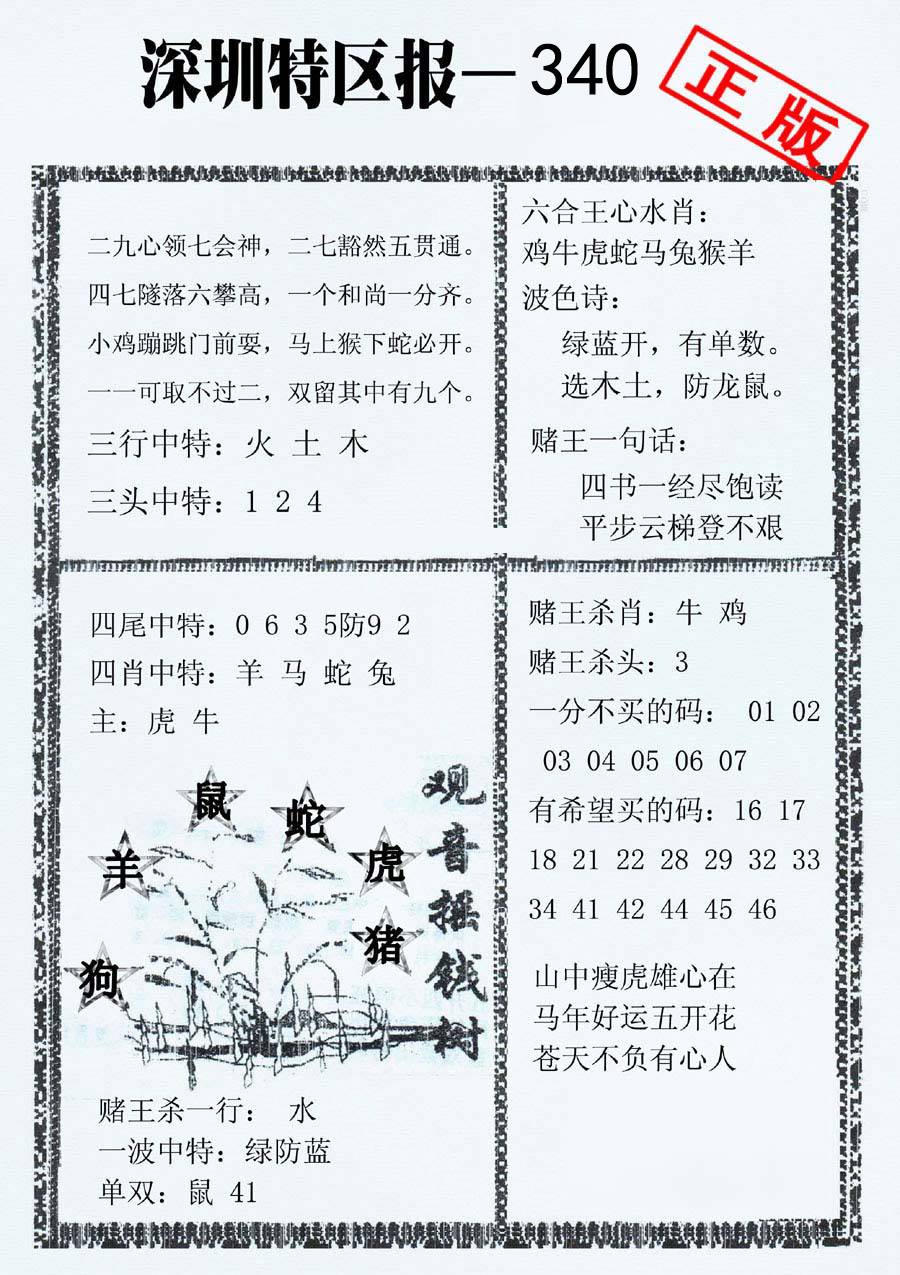 深圳特区报—340
正版
二九心领七会神，二七豁然五贯通。
四七隧落六攀高，一个和尚一分齐。
小鸡蹦跳门前耍，马上猴下蛇必开。
一一可取不过二，双留其中有九个。
三行中特：火 土 木
三头中特：1 2 4
六合王心水肖：
鸡牛虎蛇马兔猴羊
波色诗：
绿蓝开，有单数。
选木土，防龙鼠。
赌王一句话：
四书一经尽饱读
平步云梯登不艰
四尾中特：0 6 3 5防9 2
四肖中特：羊 马 蛇 兔
主：虎 牛
狗
羊
鼠
蛇
虎
猪
观音摇钱树
赌王杀一行： 水
一波中特：绿防蓝
单双：鼠 41
赌王杀肖：牛 鸡
赌王杀头：3
一分不买的码： 01 02
03 04 05 06 07
有希望买的码：16 17
18 21 22 28 29 32 33
34 41 42 44 45 46
山中瘦虎雄心在
马年好运五开花
苍天不负有心人